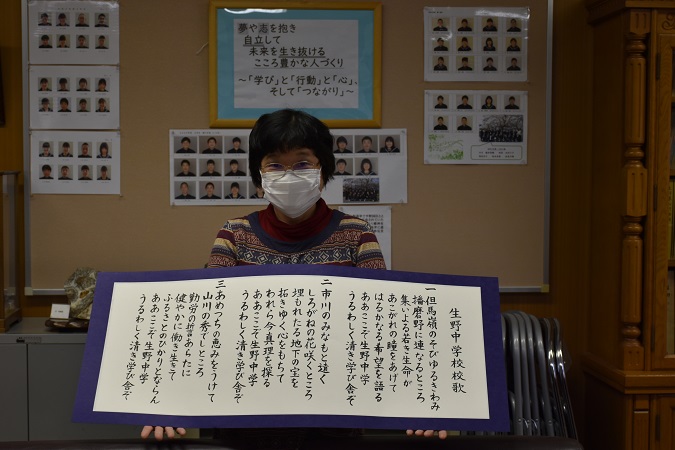 夢や志を抱き
自立して
未来を生き抜ける
こころ豊かな人づくり
～「学び」と「行動」と「心」、
そして「つながり」～
生野中学校校歌
一 但馬嶺のそびゆるきわみ
播磨野に連なるところ
集いよる若き生命が
あこがれの瞳をあげて
はるかなる希望を語る
ああここぞ生野中学
うるわしく清き学び舎ぞ
二 市川のみなもと遠く
しろがねの花咲くところ
埋もれたる地下の宝を
拓きゆく心をもちて
われら今真理を探る
ああここぞ生野中学
うるわしく清き学び舎ぞ
三 あめつちの恵みをうけて
山川の秀でしところ
勤労の誓あらたに
健やかに働き生きて
ふるさとのひかりとならん
ああここぞ生野中学
うるわしく清き学び舎ぞ